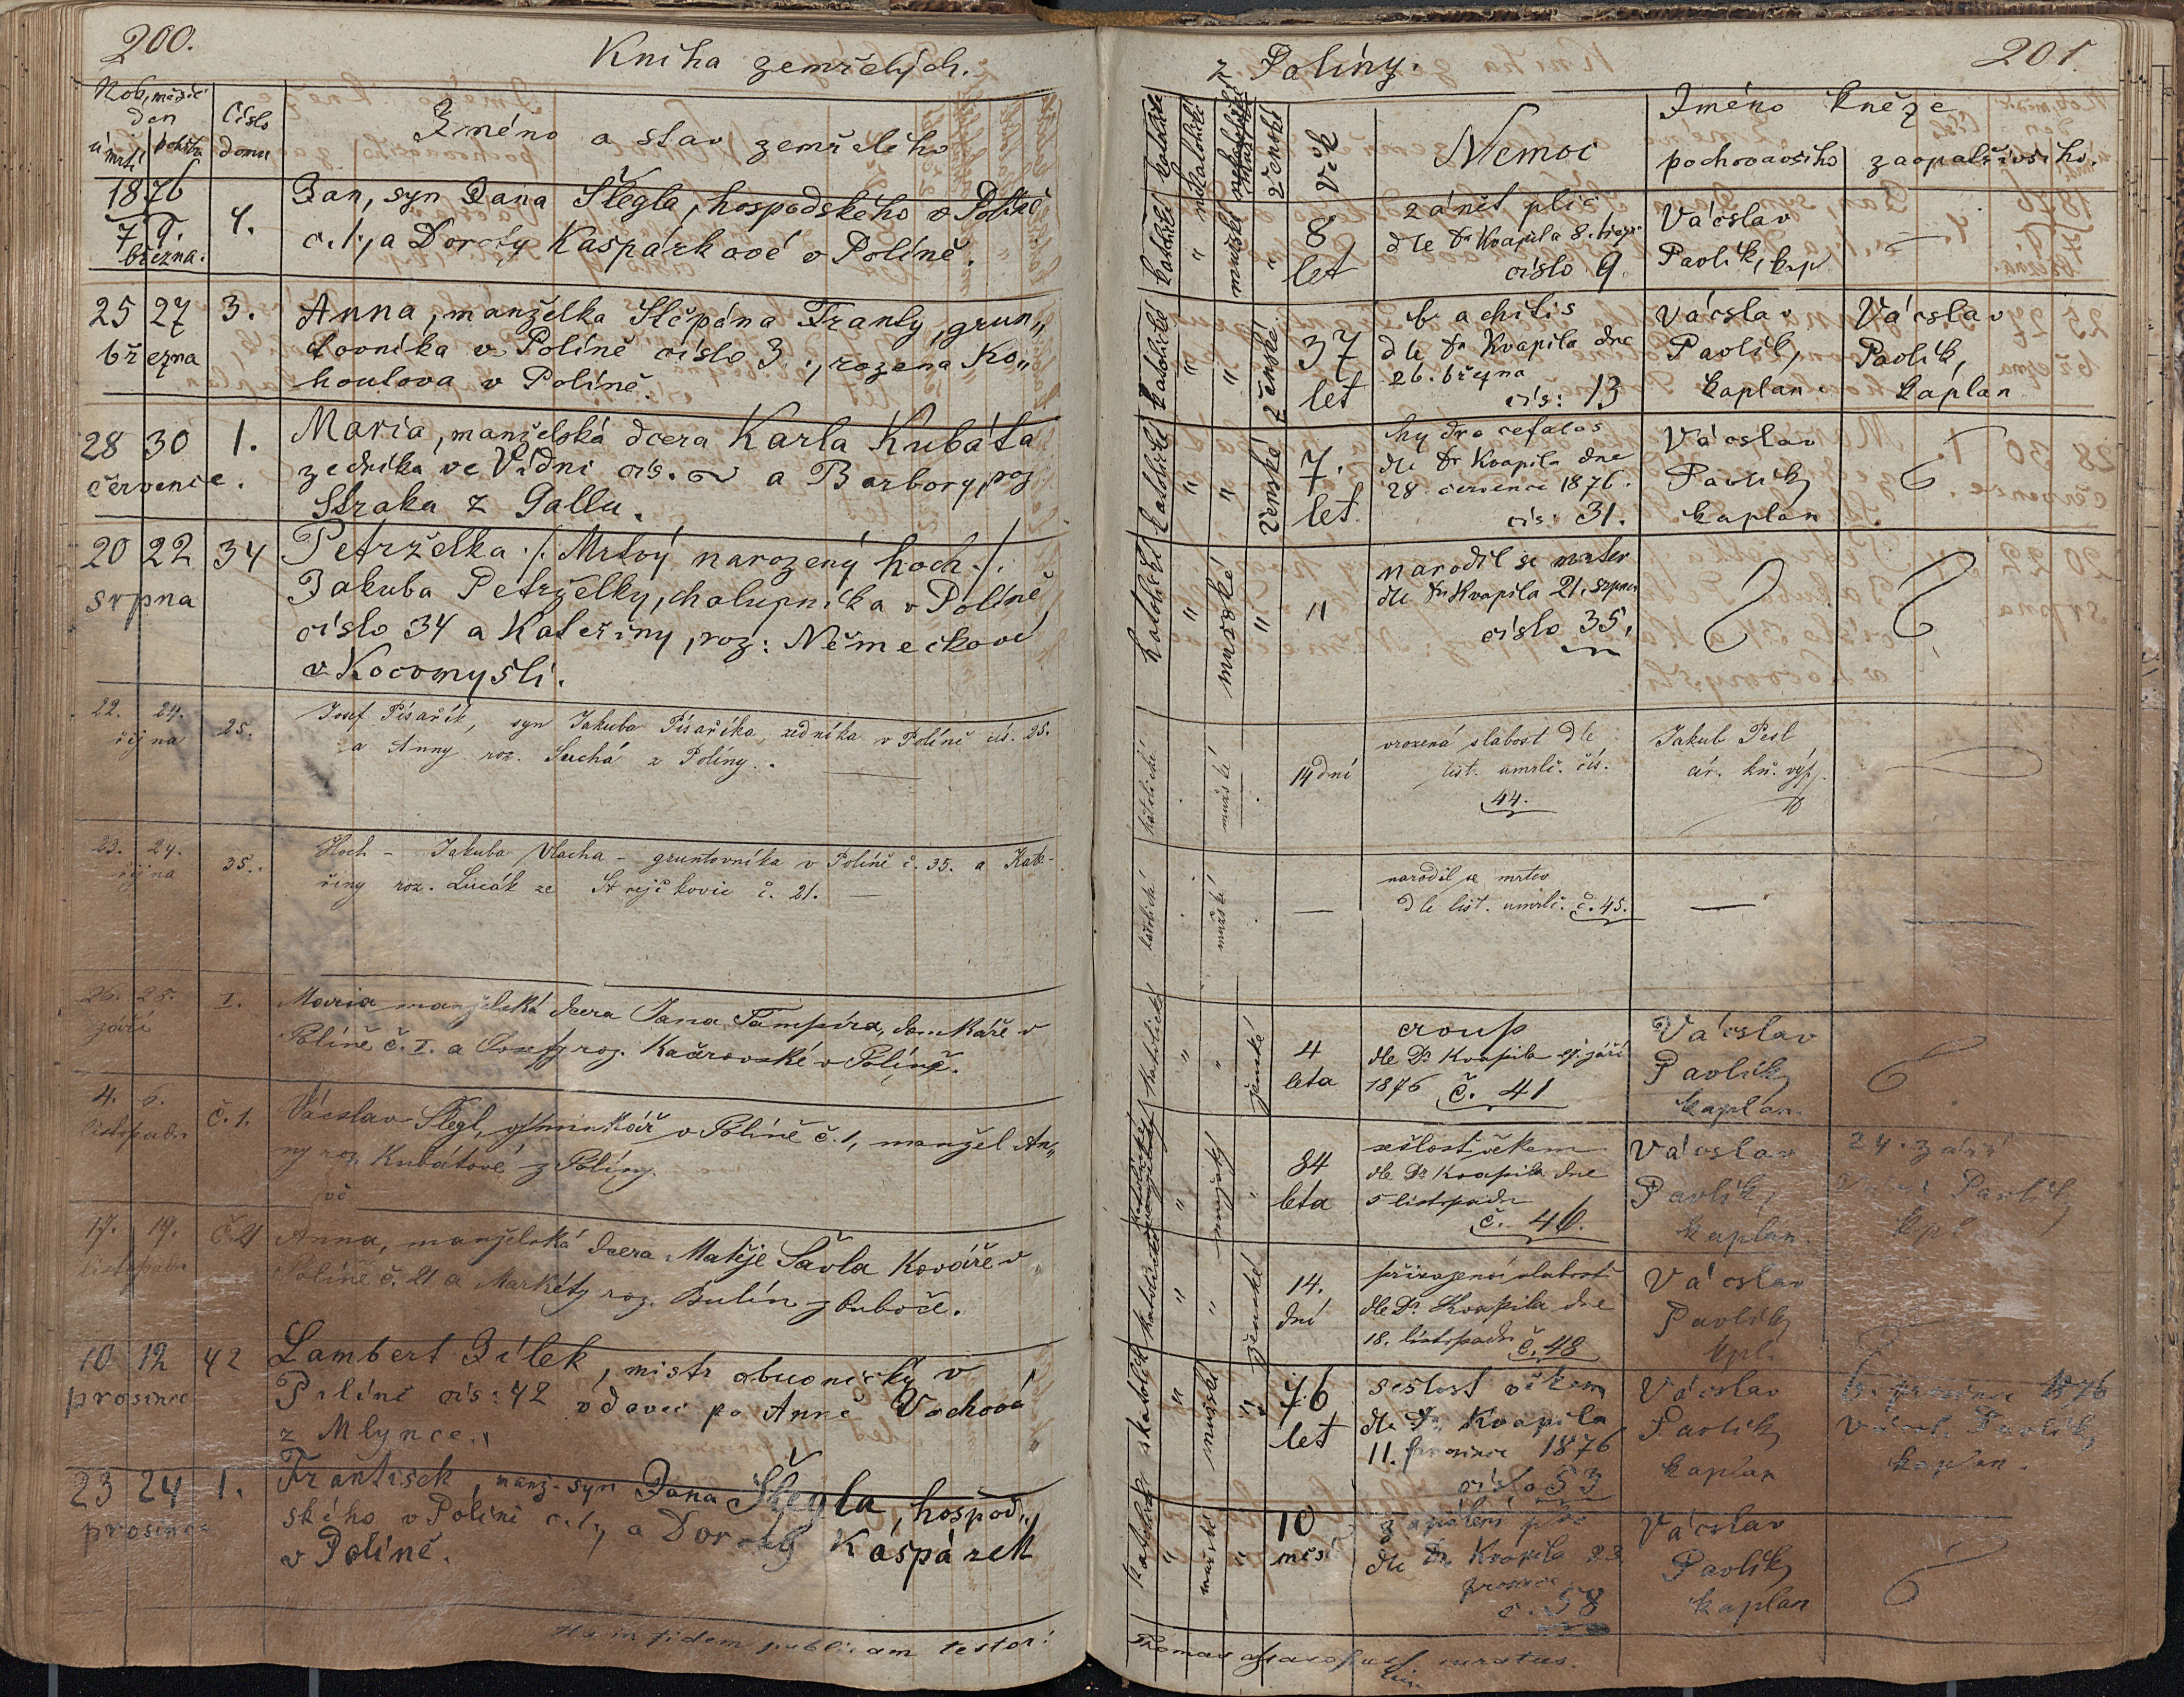 200.
Kniha zemřelých.
Rok, měsíc
den
úmrtí
pohřbu
Číslo
domu
Jméno a stav zemřelého
1876
7 9.
března.
4.
Jan, syn Jana Šlegla, hospodského v Políně
č. 1., a Doroty Kašpárkové v Políně.
25 27
března
3.
Anna, manželka Štěpána Franty, grun„
tovníka v Políně číslo 3., rozena Ko„
houtova v Políně.
28 30
července.
1.
Maria, manželská dcera Karla Kubáta
zedníka ve Vídni čís. a Barbory, roz
Straka z Gallu.
20 22
srpna
34
Petrželka ./. Mrtvý narozený hoch ./.
Jakuba Petrželky, chalupníka v Políně
číslo 34 a Kateřiny, roz: Němečkové
v Kocomyšli.
22. 24.
října
25.
Josef Písařík, syn Jakuba Písaříka, zedníka v Políně čís. 25.
a Anny roz. Suchá z Políny.
23. 24.
října
35.
Hoch – Jakuba Vlacha – gruntovníka v Políně č. 35. a Kate-
řiny roz. ze Strejčkovic č. 21. —
26. 28.
září
I.
Maria manželská dcera Jana Tampíra, domkaře v
Políně č. I. a Josefy roz. Kačerovské v Políně.
4. 6.
listopadu
č. 1.
Václav Šlegl, v Políně č. 1, manžel An„
ny roz. Kubátové z Políny.
vč
17. 19.
listopadu
č. 21
Anna, manželská dcera Matěje Šavla Kováře v
Políně č. 21 a Markéty roz. Bulín z
10 12
prosince
42
Lambert Jílek, mistr obuvnický v
Políně čís: 42 vdovec po Anně Vachová
z Mlynce.
23 24
prosince
1.
František, manž. syn Jana Šlegla, hospod„
ského v Políně č. 1, a Doroty Kašpárek
v Políně.
Ita in fidem publicam testor:
z Políny.
201.
katolické
nekatolické
mužské
ženské
Věk
Nemoc
Jméno kněze
pochovavšího
zaopatřivšího.
katolické
„
mužské
„
8
let
zánět plic
dle Dr Kvapila 8. března
číslo 9.
Vácslav
Pavlík, kap
—
katolické
„
„
ženské
37
let
dle Dr Kvapila dne
26. března
čís: 13
Vácslav
Pavlík,
kaplan
Vácslav
Pavlík,
kaplan
katolické
„
„
ženské
7.
let
hydrocefalos
dle Dr Kvapila dne
28. července 1876.
čís: 31.
Vácslav
Pavlík
kaplan
katolické
„
mužské
„
„
narodil se mrtev
dle Dr Kvapila 21. srpna
číslo 35,
katolické
mužské
14 dní
vrozená slabost dle
list. umrlč. čís.
44.
Jakub Pesl
cír. kn. výp.
katolické
mužské
—
narodil se mrtev
dle list. umrlč. č. 45.
—
katolické
„
„
ženské
4
leta
croup
dle Dr Kvapila 27. září
1876 č. 41
Vácslav
Pavlík
kaplan.
katolické
„
mužský
„
84
leta
sešlost věkem
dle Dr Kvapila dne
5 listopadu
č. 46.
Vácslav
Pavlík,
kaplan.
24. září
Pavlík
kpl.
katolické
„
„
ženské
14.
dní
přirozená slabost
dle Dr. Kvapila dne
18. listopadu č. 48
Vácslav
Pavlík
kpl.
katolick
„
mužské
„
76
let
sešlost věkem
dle Dr. Kvapila
11. prosince 1876
číslo 53
Vácslav
Pavlík
kaplan
prosince 1876
Václ. Pavlík
kaplan.
katolické
„
mužské
„
10
měs
zapálení plic
dle Dr Kvapila 23
prosince
č. 58
Vácslav
Pavlík
kaplan
Thomas curatus.